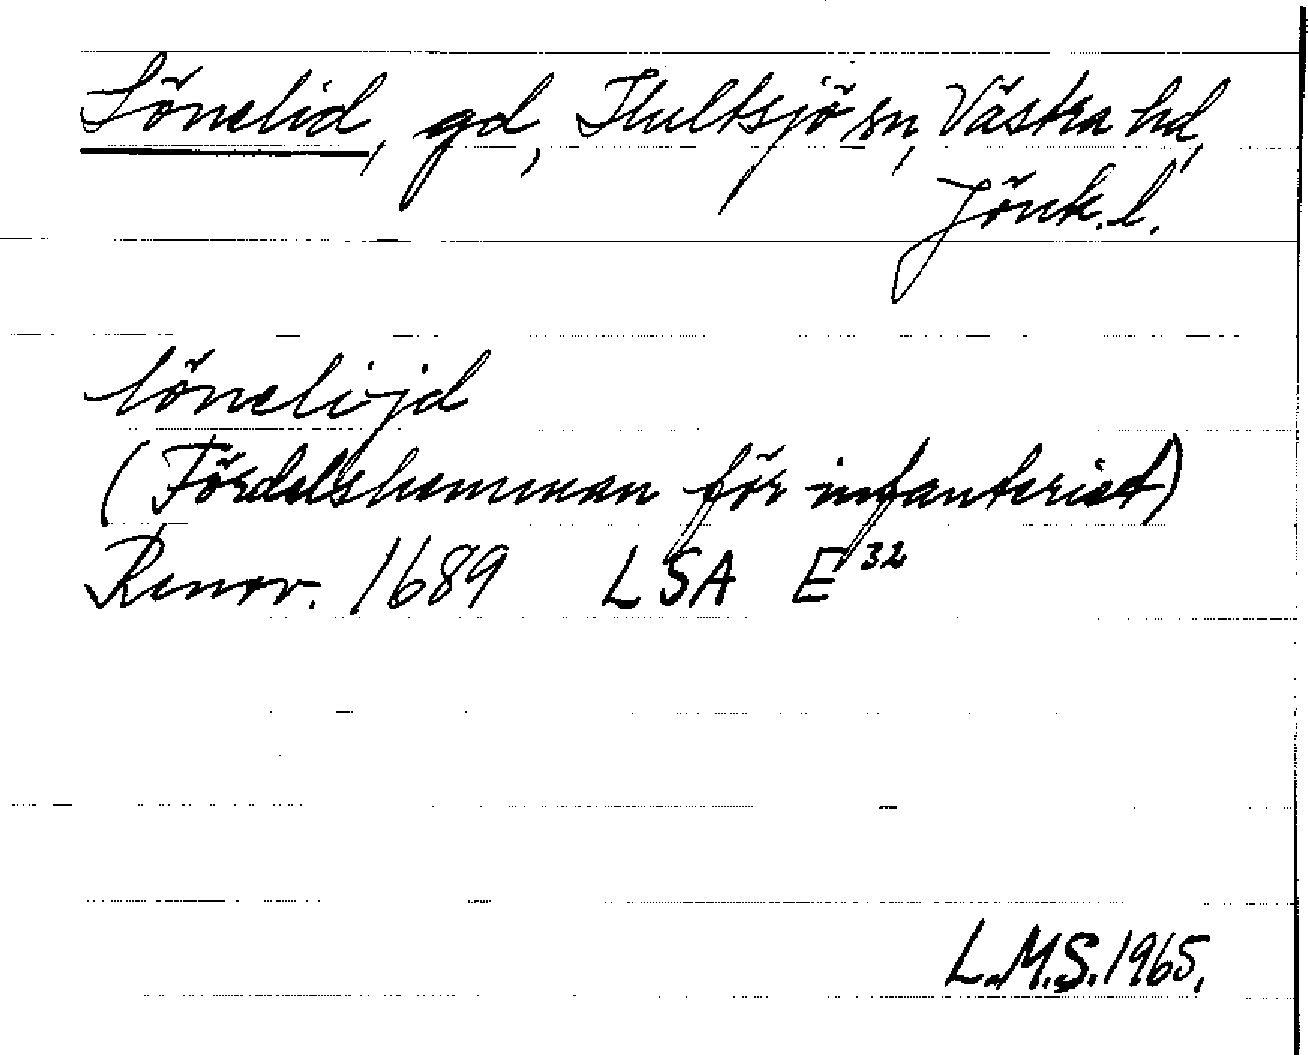 Lönelid, gd, Hultsjö sn, Västra hd,
Jönk. l.
lönelijd
(Fördelshemman för infanteriet)
Renov. 1689 LSA E³²
L.M.S. 1965.